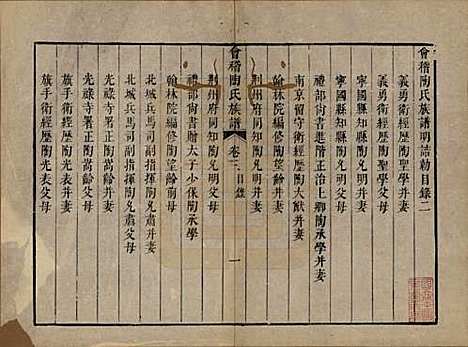 會稽陶氏族譜明誥勅目錄二
義勇衛經歷陶聖學并妻
義勇衛經歷陶聖學父母
寧國縣知縣陶允明并妻
寧國縣知縣陶允明父母
禮部尚書進階正治上卿陶承學并妻
南京留守衛經歷陶大猷并妻
翰林院編修陶望齡并妻
荊州府同知陶允明并妻
會稽陶氏族譜
卷三
目錄
一
荊州府同知陶允明父母
禮部尚書贈太子少保陶承學
翰林院編修陶望齡前母
北城兵馬司副指揮陶允肅并妻
北城兵馬司副指揮陶允肅父母
光祿寺署正陶崇齡并妻
光祿寺署正陶崇齡父母
旗手衛經歷陶光表并妻
旗手衛經歷陶光表父母